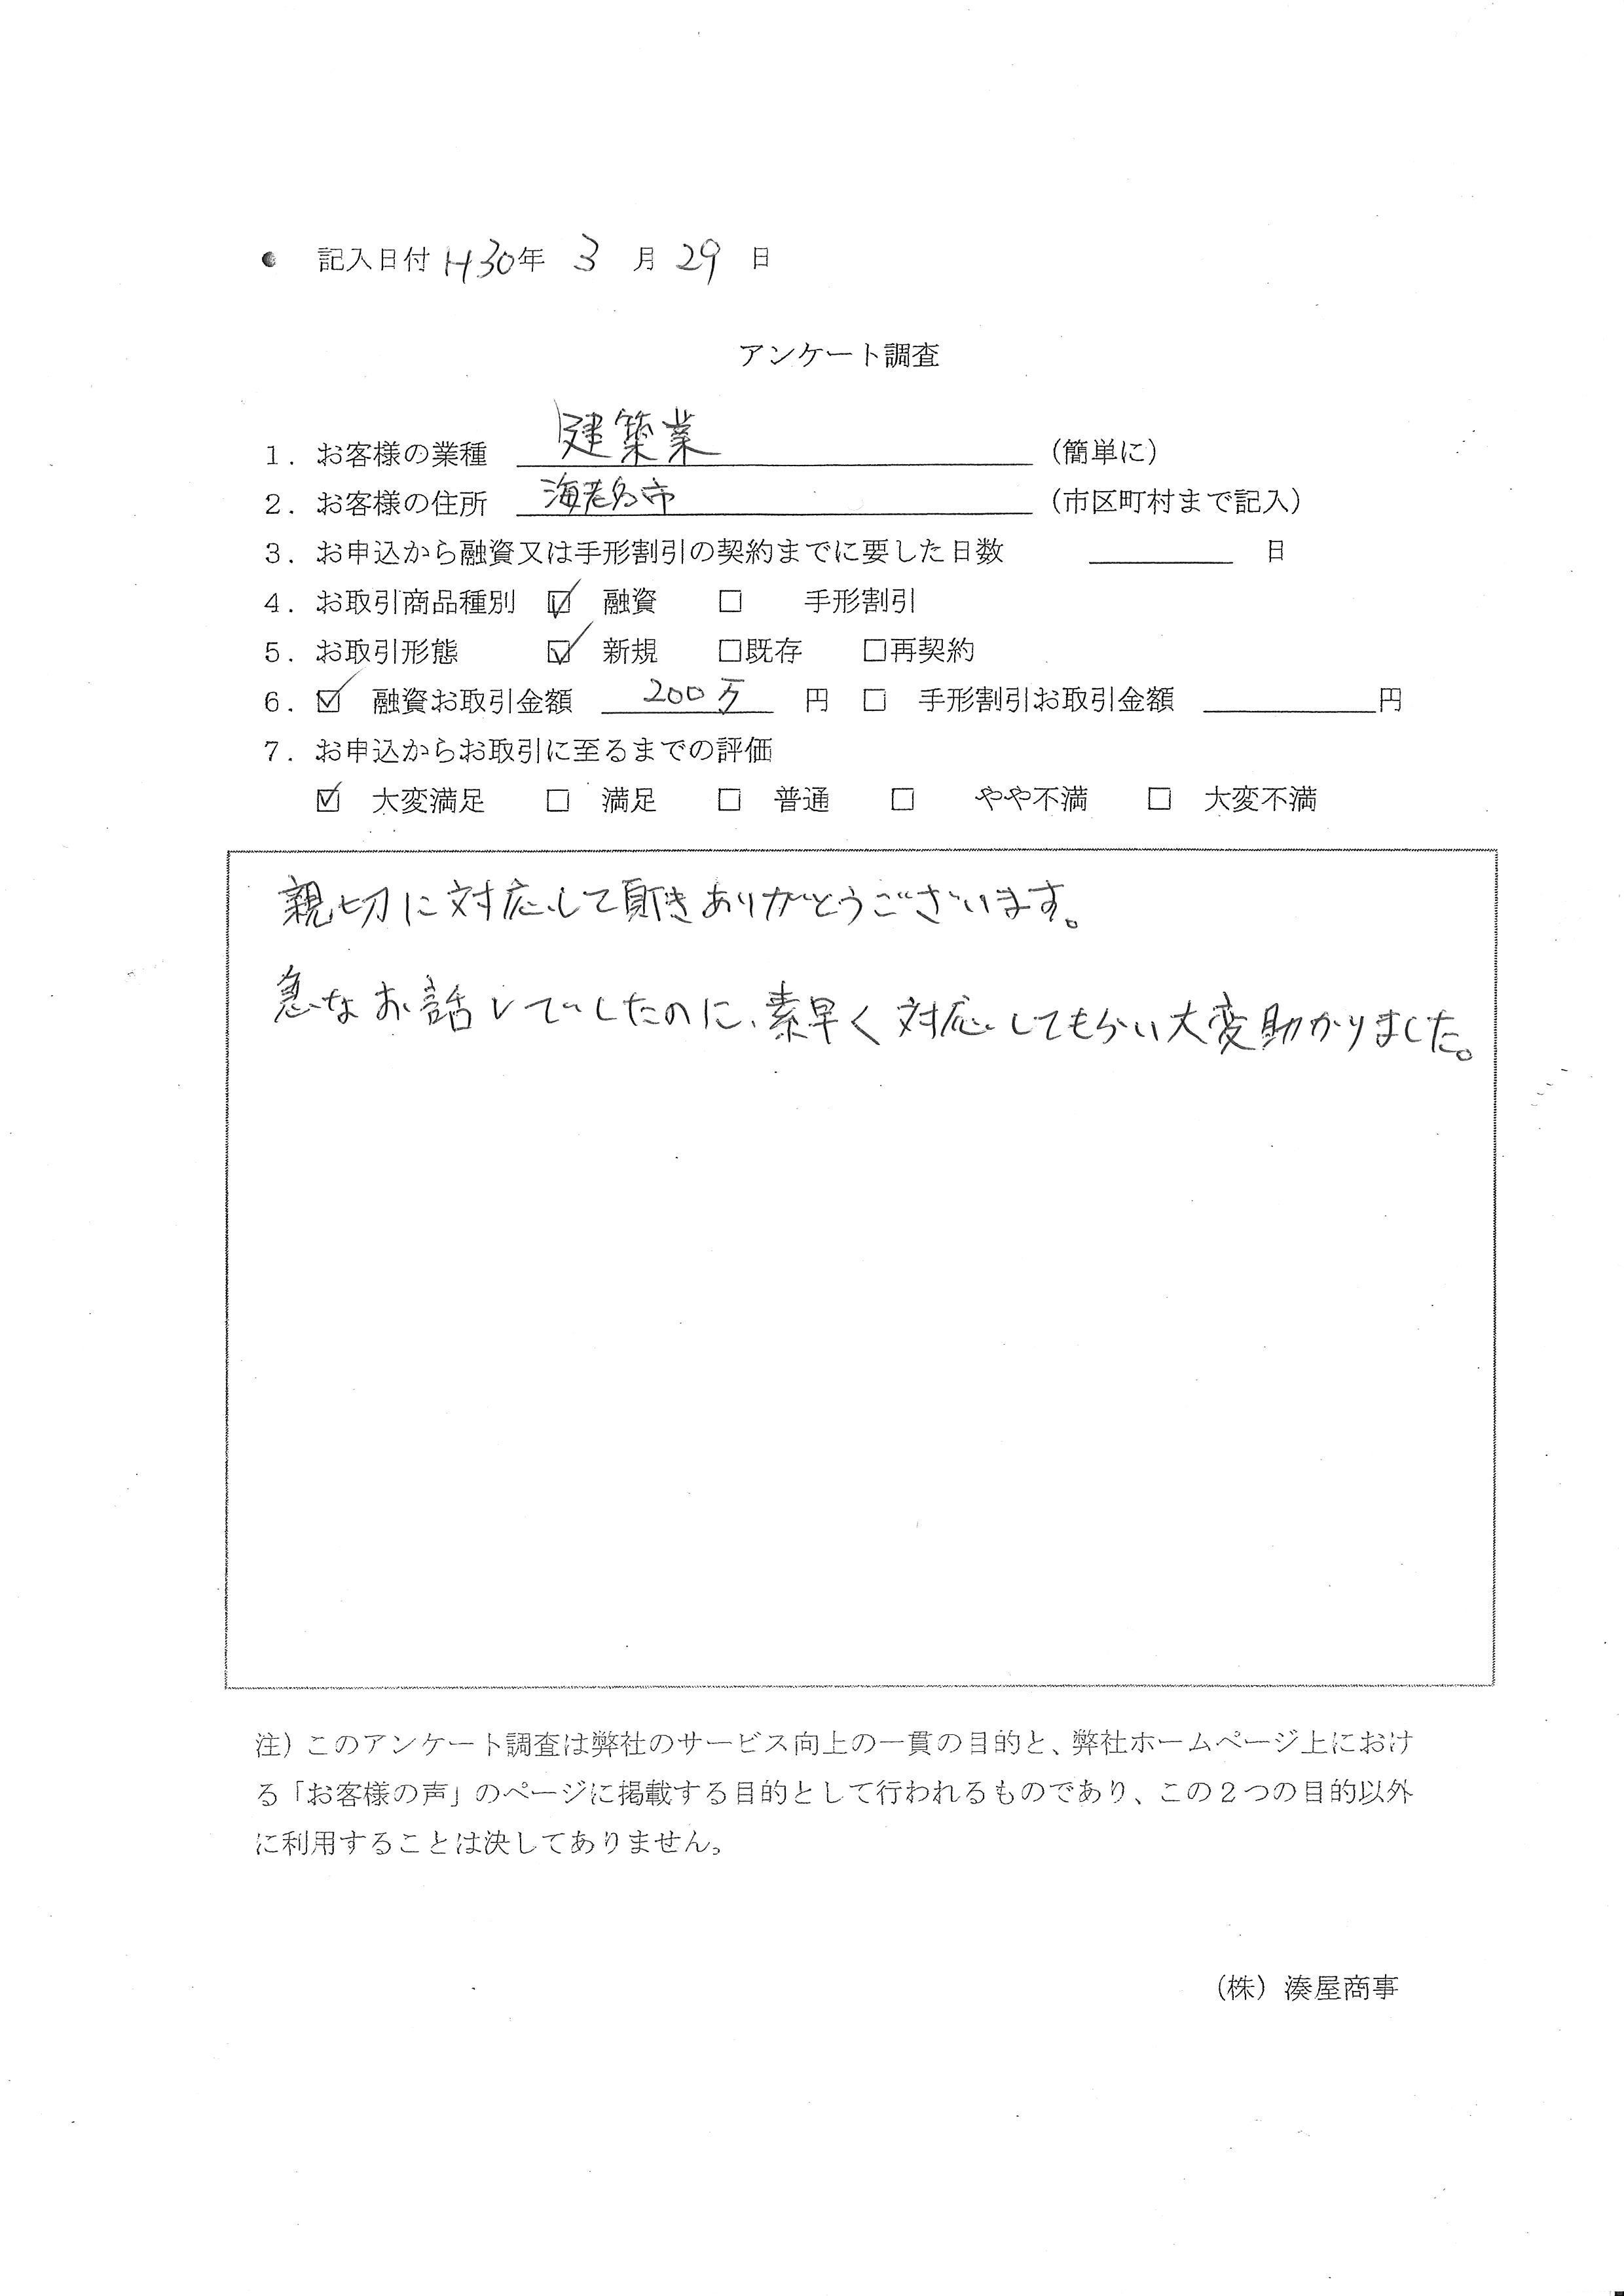 ● 記入日付 H30年 3 月 29 日
アンケート調査
1. お客様の業種 建築業 (簡単に)
2. お客様の住所 海老名市 (市区町村まで記入)
3. お申込から融資又は手形割引の契約までに要した日数 日
4. お取引商品種別 ☑ 融資 □ 手形割引
5. お取引形態 ☑ 新規 □既存 □再契約
6. ☑ 融資お取引金額 200万 円 □ 手形割引お取引金額 円
7. お申込からお取引に至るまでの評価
☑ 大変満足 □ 満足 □ 普通 □ やや不満 □ 大変不満
親切に対応して頂きありがとうございます。
急なお話しでしたのに、素早く対応してもらい大変助かりました。
注)このアンケート調査は弊社のサービス向上の一貫の目的と、弊社ホームページ上におけ
る「お客様の声」のページに掲載する目的として行われるものであり、この２つの目的以外
に利用することは決してありません。
(株) 湊屋商事